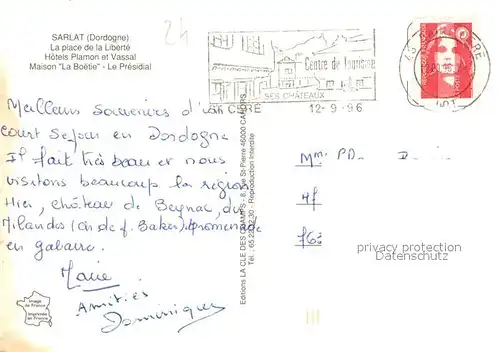 24
SARLAT (Dordogne)
La place de la Liberté
Hôtels Plamon et Vassal
Maison "La Boëtie" - Le Présidial
Centre de Tourisme
SES CHÂTEAUX
CERE
12-9-96
Meilleurs souvenirs d'un
court séjour en Dordogne
Il fait très beau et nous
visitons beaucoup la région
Hier, château de Beynac, des
Milandes (de Baker), promenade
en gabarre.
Marie
Amitiés
Dominique
Editions LA CLE DES CHAMPS - 8, rue St Pierre 46000 CAHORS
Reproduction Interdite
Mme
privacy protection
Datenschutz
Image
de France
Imprimée
en France